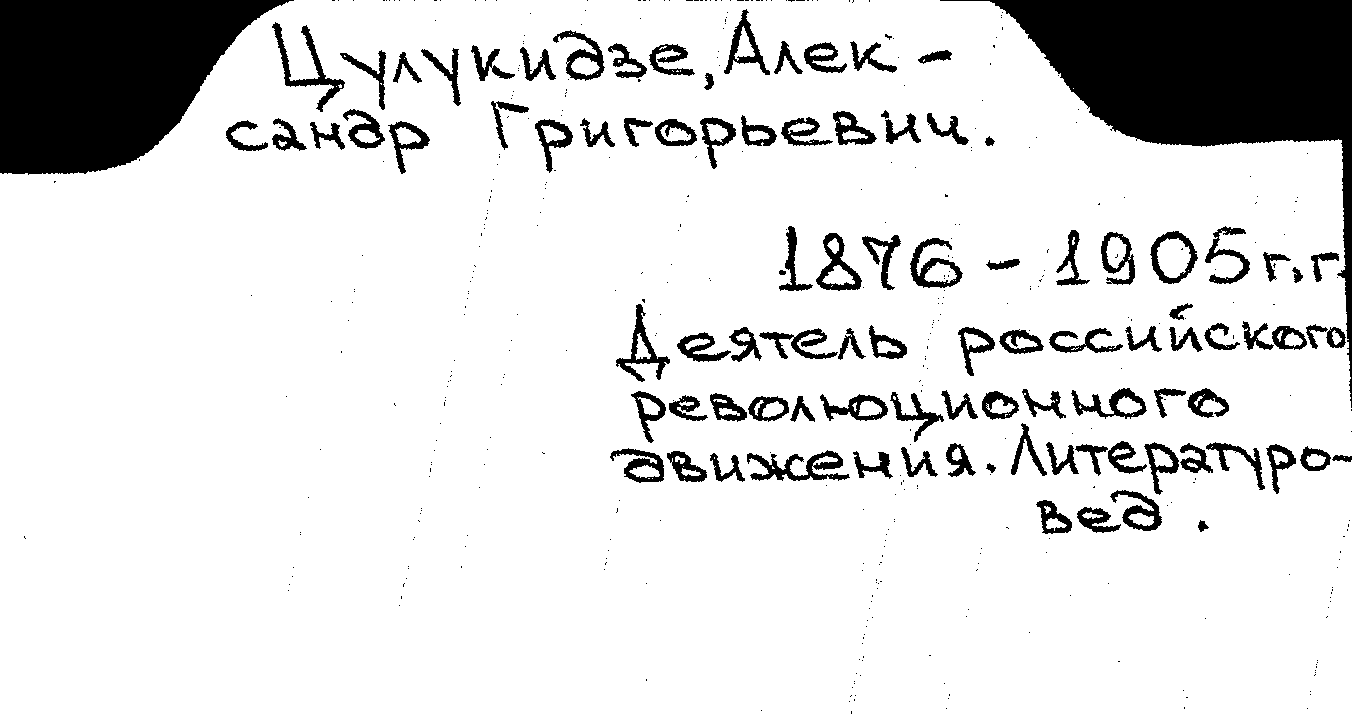 Цулукидзе, Алек-
сандр Григорьевич.
1876 - 1905 г.г.
Деятель российского
революционного
движения. Литературо-
вед.